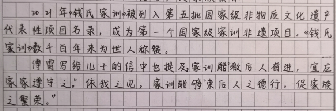 2021年《钱氏家训》被列入第五批国家级非物质文化遗产
代表性项目名录，成为第一个国家级家训非遗项目。《钱氏
家训》数千百年来为世人称颂，
傅雷写给儿子的信中也提及家训醒敬后人精进，宜应
家家遵守之。"依我之见，家训醒够束后人之德行，促家族
之繁荣。"